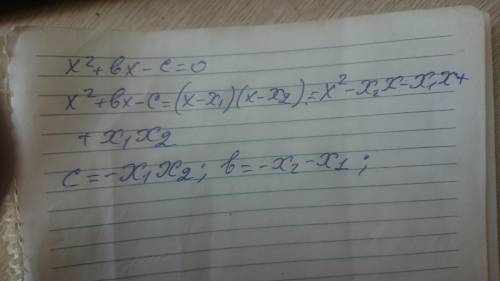 x²+вx-c=0
x²+вx-c=(x-x₁)(x-x₂)=x²-x₂x-x₁x+
+x₁x₂
c=-x₁x₂; в=-x₂-x₁;